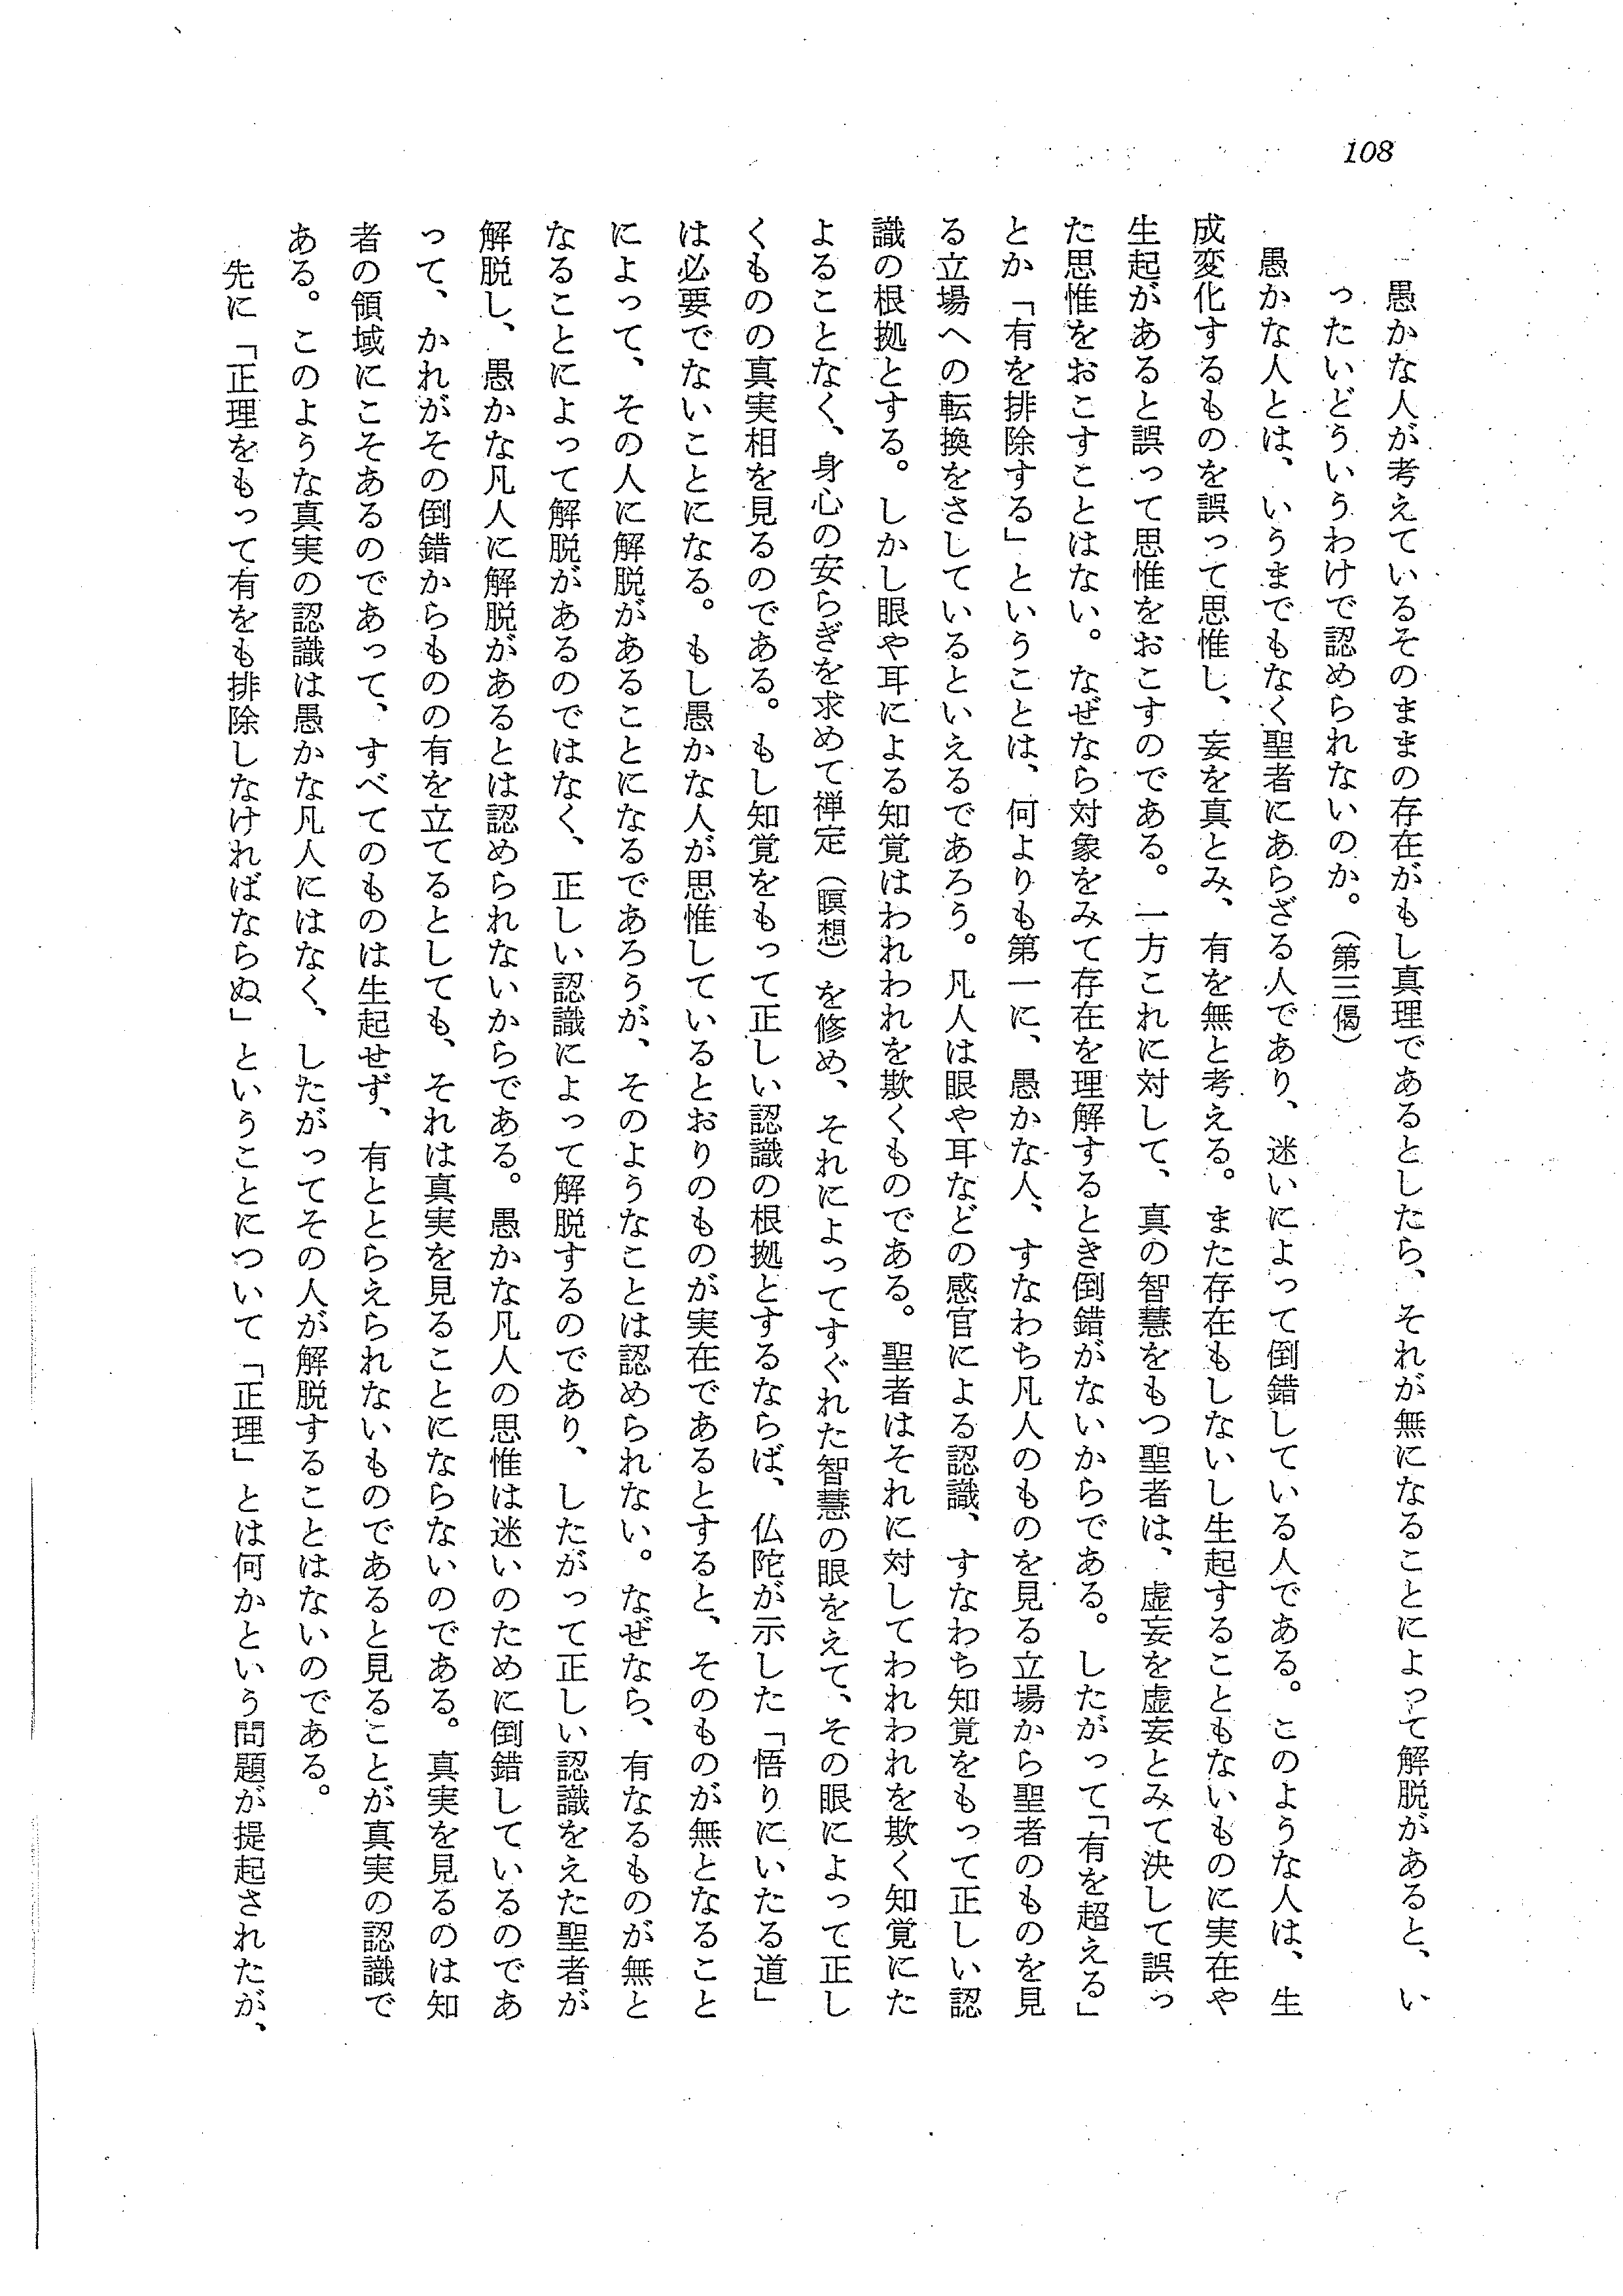 108
愚かな人が考えているそのままの存在がもし真理であるとしたら、それが無になることによって解脱があると、い
ったいどういうわけで認められないのか。（第三偈）
愚かな人とは、いうまでもなく聖者にあらざる人であり、迷いによって倒錯している人である。このような人は、生
成変化するものを誤って思惟し、妄を真とみ、有を無と考える。また存在もしないし生起することもないものに実在や
生起があると誤って思惟をおこすのである。一方これに対して、真の智慧をもつ聖者は、虚妄を虚妄とみて決して誤っ
た思惟をおこすことはない。なぜなら対象をみて存在を理解するとき倒錯がないからである。したがって「有を超える」
とか「有を排除する」ということは、何よりも第一に、愚かな人、すなわち凡人のものを見る立場から聖者のものを見
る立場への転換をさしているといえるであろう。凡人は眼や耳などの感官による認識、すなわち知覚をもって正しい認
識の根拠とする。しかし眼や耳による知覚はわれわれを欺くものである。聖者はそれに対してわれわれを欺く知覚にた
よることなく、身心の安らぎを求めて禅定（瞑想）を修め、それによってすぐれた智慧の眼をえて、その眼によって正し
くものの真実相を見るのである。もし知覚をもって正しい認識の根拠とするならば、仏陀が示した「悟りにいたる道」
は必要でないことになる。もし愚かな人が思惟しているとおりのものが実在であるとすると、そのものが無となること
によって、その人に解脱があることになるであろうが、そのようなことは認められない。なぜなら、有なるものが無と
なることによって解脱があるのではなく、正しい認識によって解脱するのであり、したがって正しい認識をえた聖者が
解脱し、愚かな凡人に解脱があるとは認められないからである。愚かな凡人の思惟は迷いのために倒錯しているのであ
って、かれがその倒錯からものの有を立てるとしても、それは真実を見ることにならないのである。真実を見るのは知
者の領域にこそあるのであって、すべてのものは生起せず、有ととらえられないものであると見ることが真実の認識で
ある。このような真実の認識は愚かな凡人にはなく、したがってその人が解脱することはないのである。
先に「正理をもって有をも排除しなければならぬ」ということについて「正理」とは何かという問題が提起されたが、